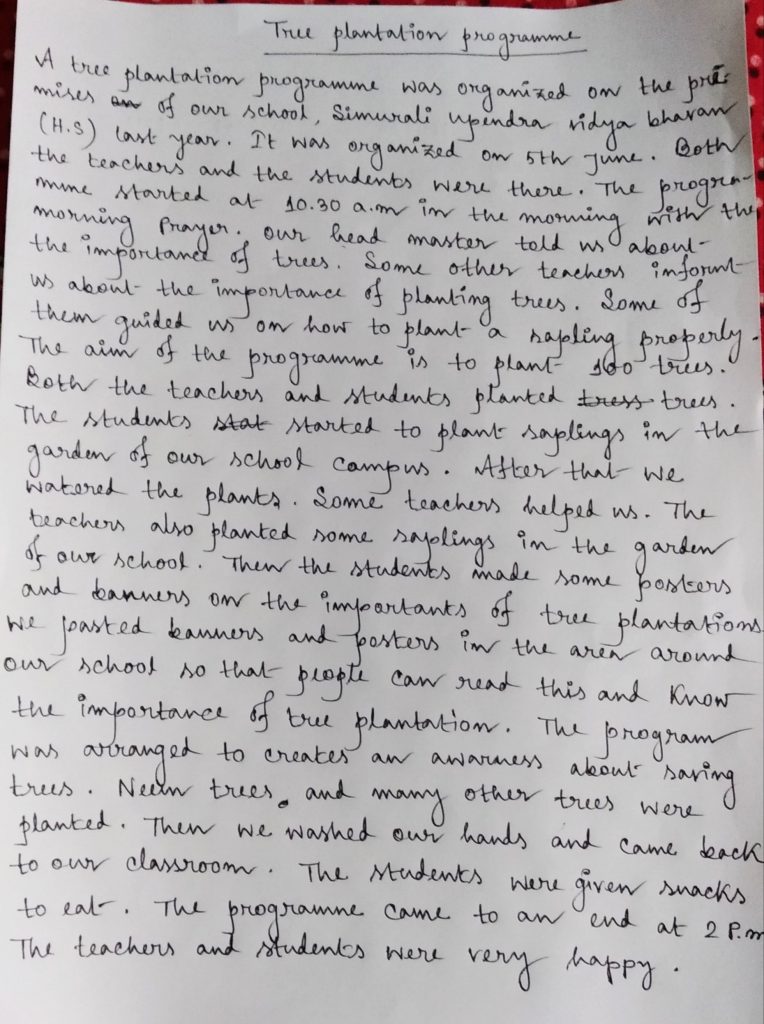 Tree plantation programme
A tree plantation programme was organized on the pre-
mises on of our school, Simurali upendra vidya bhavan
(H.S) last year. It was organized on 5th June. Both
the teachers and the students were there. The progra-
mme started at 10.30 a.m in the morning with the
morning Prayer. our head master told us about
the importance of trees. Some other teachers informt
us about the importance of planting trees. Some of
them guided us on how to plant a sapling properly.
The aim of the programme is to plant 100 trees.
Both the teachers and students planted tress trees.
The students stat started to plant saplings in the
garden of our school campus. After that we
watered the plants. Some teachers helped us. The
teachers also planted some saplings in the garden
of our school. Then the students made some posters
and banners on the importants of tree plantations
we pasted banners and posters in the area around
our school so that people can read this and Know
the importance of tree plantation. The program
was arranged to creates an awarness about saving
trees. Neem trees. and many other trees were
planted. Then we washed our hands and came back
to our classroom. The students were given snacks
to eat. The programme came to an end at 2 P.m
The teachers and students were very happy.